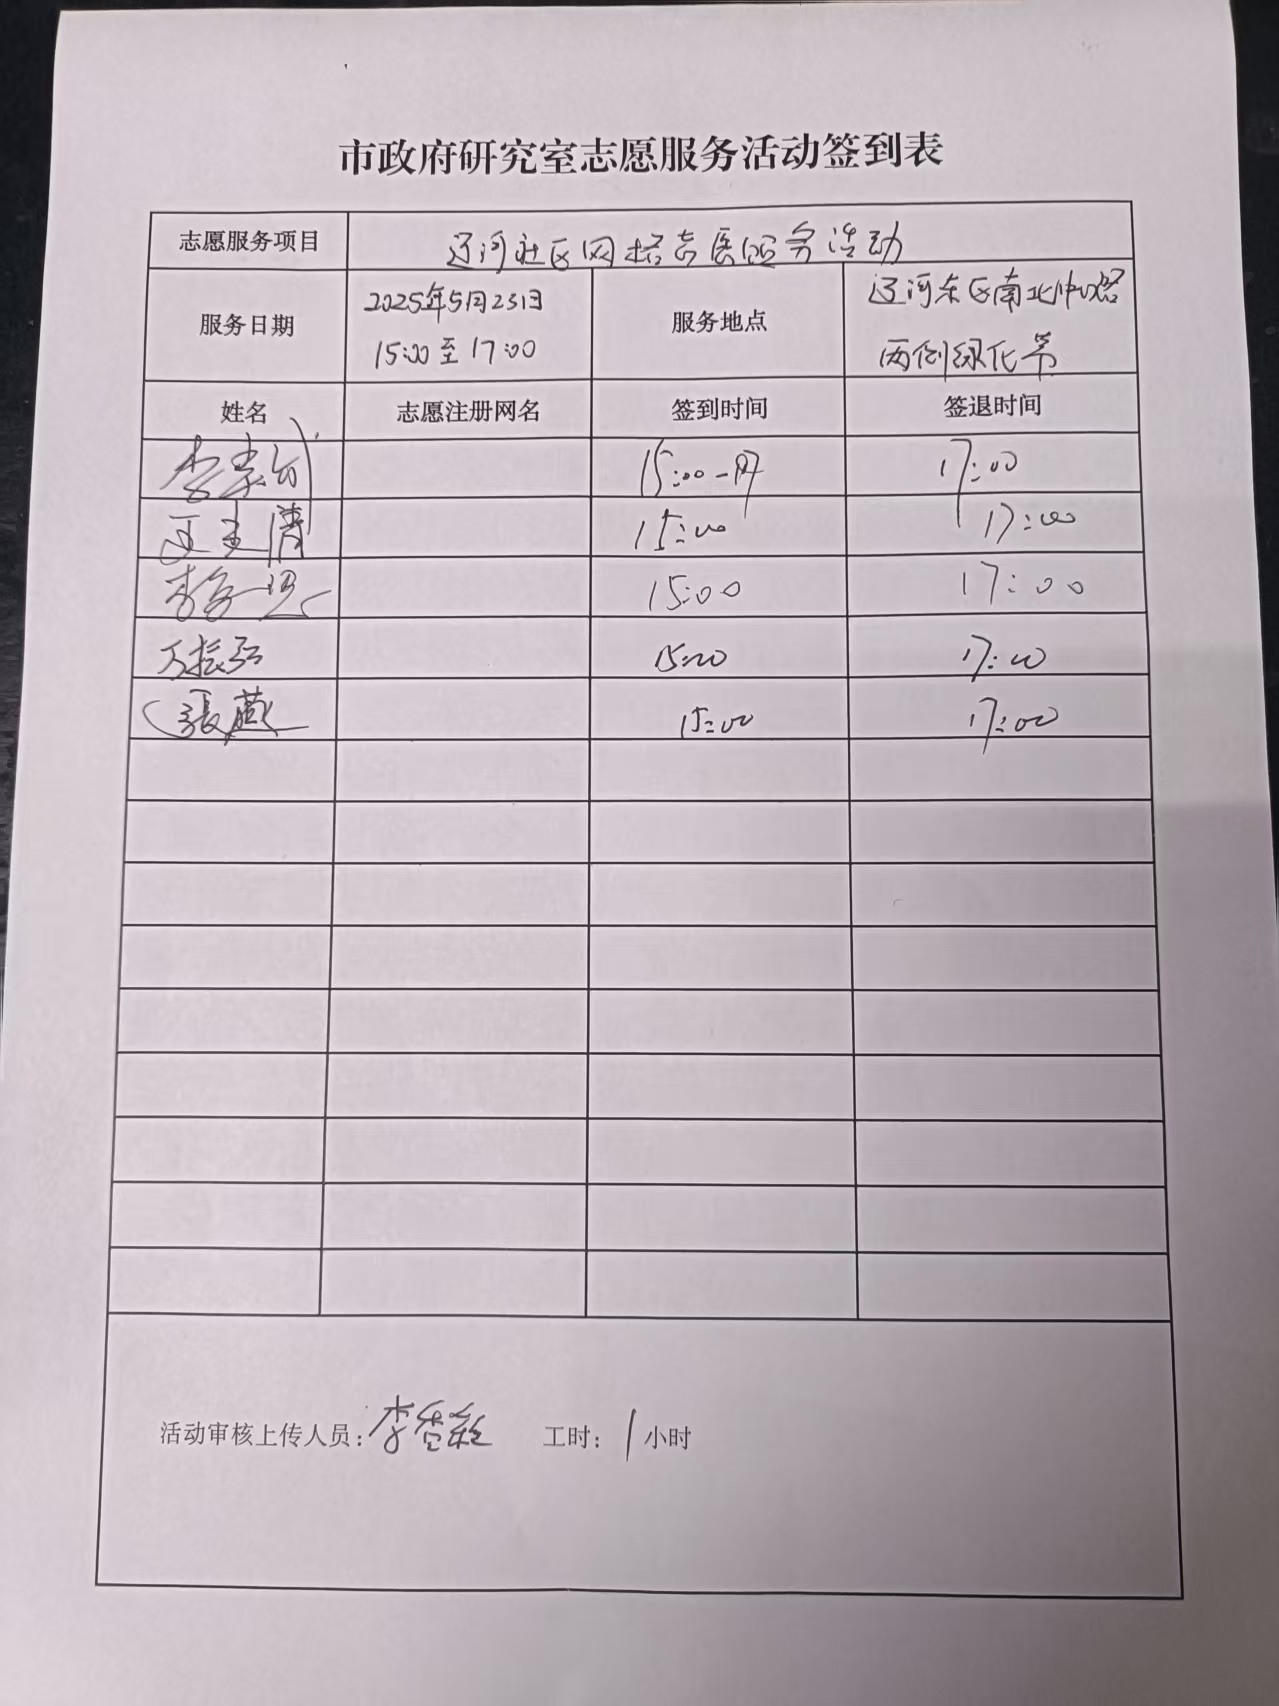 市政府研究室志愿服务活动签到表
志愿服务项目 辽河社区网格志愿服务活动
服务日期 2025年5月23日 15:00至17:00 服务地点 辽河东区南北中路两侧绿化带
姓名 志愿注册网名 签到时间 签退时间
李 15:00 17:00
王 清 15:00 17:00
李 15:00 17:00
万振 15:00 17:00
張燕 15:00 17:00
活动审核上传人员:李 工时:1小时